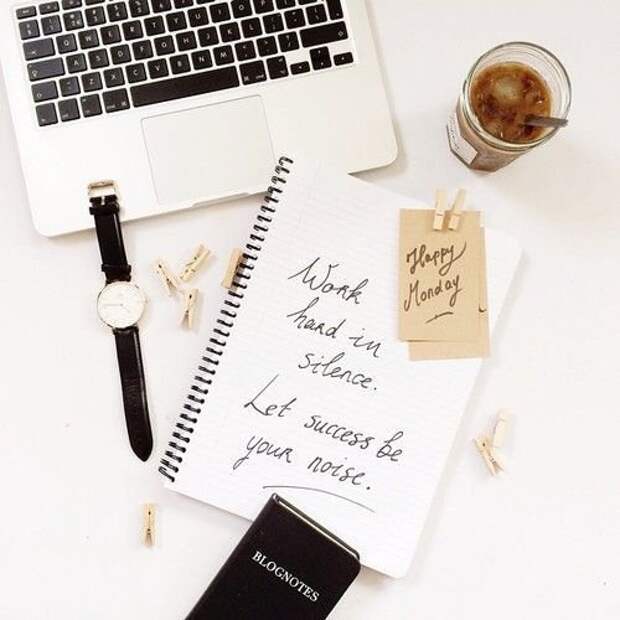 Happy
Monday
Work
hard in
silence.
Let success be
your noise.
BLOGNOTES